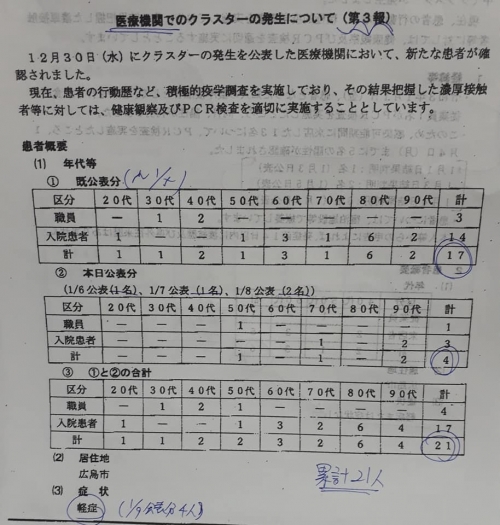 医療機関でのクラスターの発生について（第３報）
１２月３０日（水）にクラスターの発生を公表した医療機関において、新たな患者が確認されました。
現在、患者の行動歴など、積極的疫学調査を実施しており、その結果把握した濃厚接触者等に対しては、健康観察及びＰＣＲ検査を適切に実施することとしています。
患者概要
(1) 年代等
① 既公表分
区分 ２０代 ３０代 ４０代 ５０代 ６０代 ７０代 ８０代 ９０代 計
職員 － 1 2 － － － － － 3
入院患者 1 － － 1 3 1 6 2 14
計 1 1 2 1 3 1 6 2 17
② 本日公表分
（1/6 公表（1名）、1/7 公表（1名）、1/8 公表（2名））
区分 ２０代 ３０代 ４０代 ５０代 ６０代 ７０代 ８０代 ９０代 計
職員 － － － 1 － － － － 1
入院患者 － － － － － 1 － 2 3
計 － － － 1 － 1 － 2 4
③ ①と②の合計
区分 ２０代 ３０代 ４０代 ５０代 ６０代 ７０代 ８０代 ９０代 計
職員 － 1 2 1 － － － － 4
入院患者 1 － － 1 3 2 6 4 17
計 1 1 2 2 3 2 6 4 21
(2) 居住地
広島市
累計21人
(3) 症状
軽症